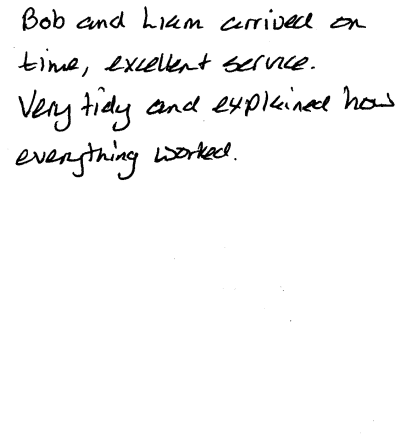 Bob and Liam arrived on
time, excellent service.
Very tidy and explained how
everything worked.